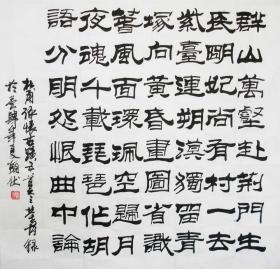 群山萬壑赴荆門生
長明妃尚有村一去
紫臺連朔漠獨留青
塚向黄昏畫圖省識
春風面環珮空歸月
夜魂千載琵琶作胡
語分明怨恨曲中論
杜甫詠懷古跡五首之三